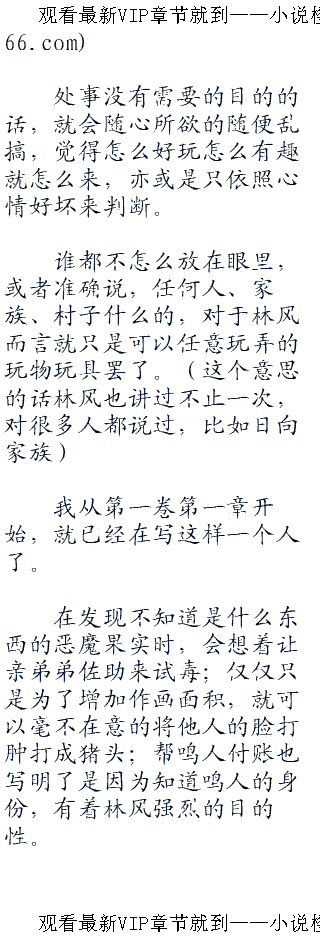 观看最新VIP章节就到——小说楼
66.com)
处事没有需要的目的的
话，就会随心所欲的随便乱
搞，觉得怎么好玩怎么有趣
就怎么来，亦或是只依照心
情好坏来判断。
谁都不怎么放在眼里，
或者准确说，任何人、家
族、村子什么的，对于林风
而言就只是可以任意玩弄的
玩物玩具罢了。（这个意思
的话林风也讲过不止一次，
对很多人都说过，比如日向
家族）
我从第一卷第一章开
始，就已经在写这样一个人
了。
在发现不知道是什么东
西的恶魔果实时，会想着让
亲弟弟佐助来试毒；仅仅只
是为了增加作画面积，就可
以毫不在意的将他人的脸打
肿打成猪头；帮鸣人付账也
写明了是因为知道鸣人的身
份，有着林风强烈的目的
性。
观看最新VIP章节就到——小说